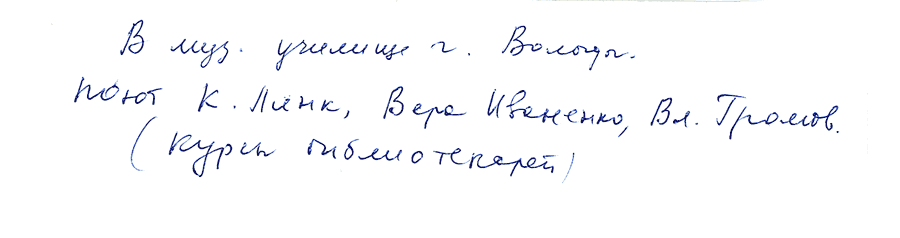 В муз. училище г. Вологды.
поют К. Линк, Вера Иваненко, Вл. Громов.
(Курсы библиотекарей)